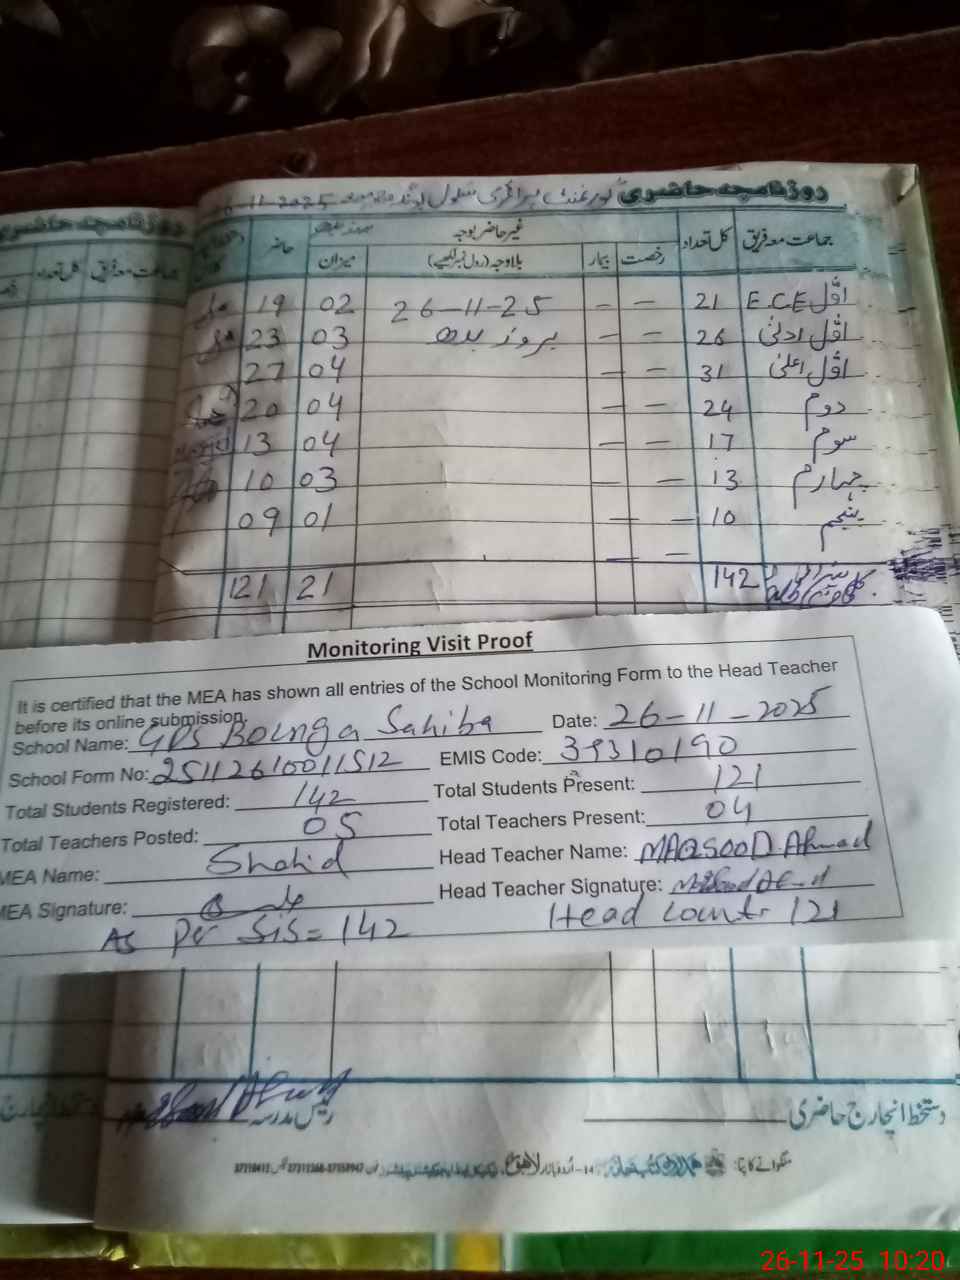 روزنامچہ حاضری گورنمنٹ پرائمری سکول 2025
جماعت معہ فریق کل تعداد غیر حاضر بوجہ حاضر
رخصت بیمار بلاوجہ (رول نمبر لکھیے) میزان
اوّل E.C.E 21 — — 26-11-25 02 19
اوّل ادنیٰ 26 — — بروز بدھ 03 23
اوّل اعلیٰ 31 — — 04 27
دوم 24 — — 04 20
سوم 17 — — 04 13
چہارم 13 — — 03 10
پنجم 10 — — 01 09
— —
142 21 121
روزنامچہ حاضری
جماعت معہ فریق کل تعداد
Monitoring Visit Proof
It is certified that the MEA has shown all entries of the School Monitoring Form to the Head Teacher
before its online submission.
School Name: GPS Bounga Sahiba Date: 26-11-2025
School Form No: 25112610011512 EMIS Code: 39310190
Total Students Registered: 142 Total Students Present: 121
Total Teachers Posted: 05 Total Teachers Present: 04
MEA Name: Shahid Head Teacher Name: MAQSOOD Ahmad
MEA Signature: Head Teacher Signature:
As Per SIS = 142 Head Count 121
دستخط انچارج حاضری رئیس مدرسہ
منگوانے کا پتہ: 14-اُردو بازار لاہور
26-11-25 10:20